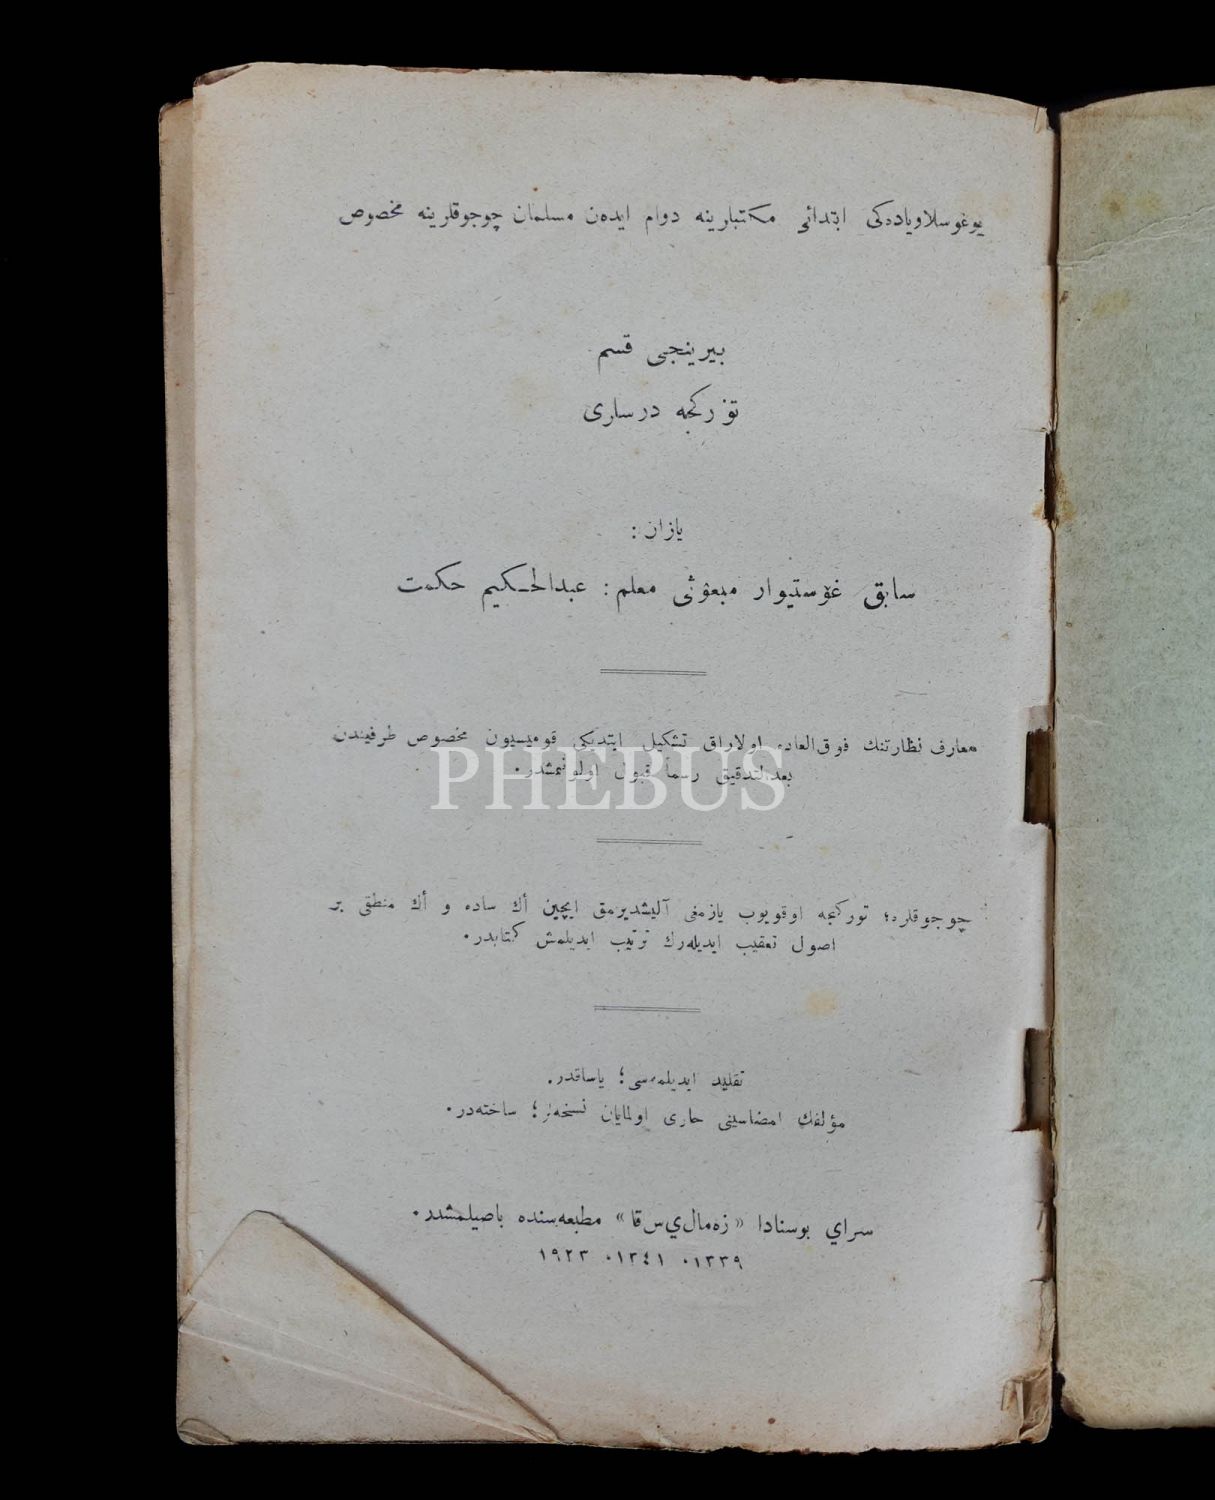 يوغوسلاوياده‌كی ابتدائی مكتبلرينه دوام ايده‌ن مسلمان چوجوقلرينه مخصوص
بيرينجی قسم
تۆركجه درسلری
يازان :
سابق غۆستيوار مبعوثی معلم : عبدالحكيم حكمت
معارف نظارتنك فوق‌العاده اولاراق تشكيل ايتديكی قوميسيون مخصوص طرفيندن
بعدالتدقيق رسماً قبول اولونمشدر.
PHEBUS
چوجوقلره؛ توركجه اوقويوب يازمغی آليشديرمق ايچين أك ساده و أك منطقی بر
اصول تعقيب ايديله‌رك ترتيب ايديلمش كتابدر.
تقليد ايديلمه‌سی؛ ياساقدر.
مؤلفك امضاسينی حاوی اولمايان نسخه‌لر؛ ساخته‌در.
سرای بوسنادا «زه‌مال‌ي‌س‌قا» مطبعه‌سنده باصيلمشدر.
١٣٣٩. ١٣٤١. ١٩٢٣